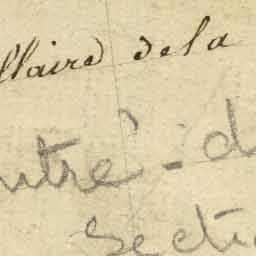 llaire de la
ntré - d
Secti